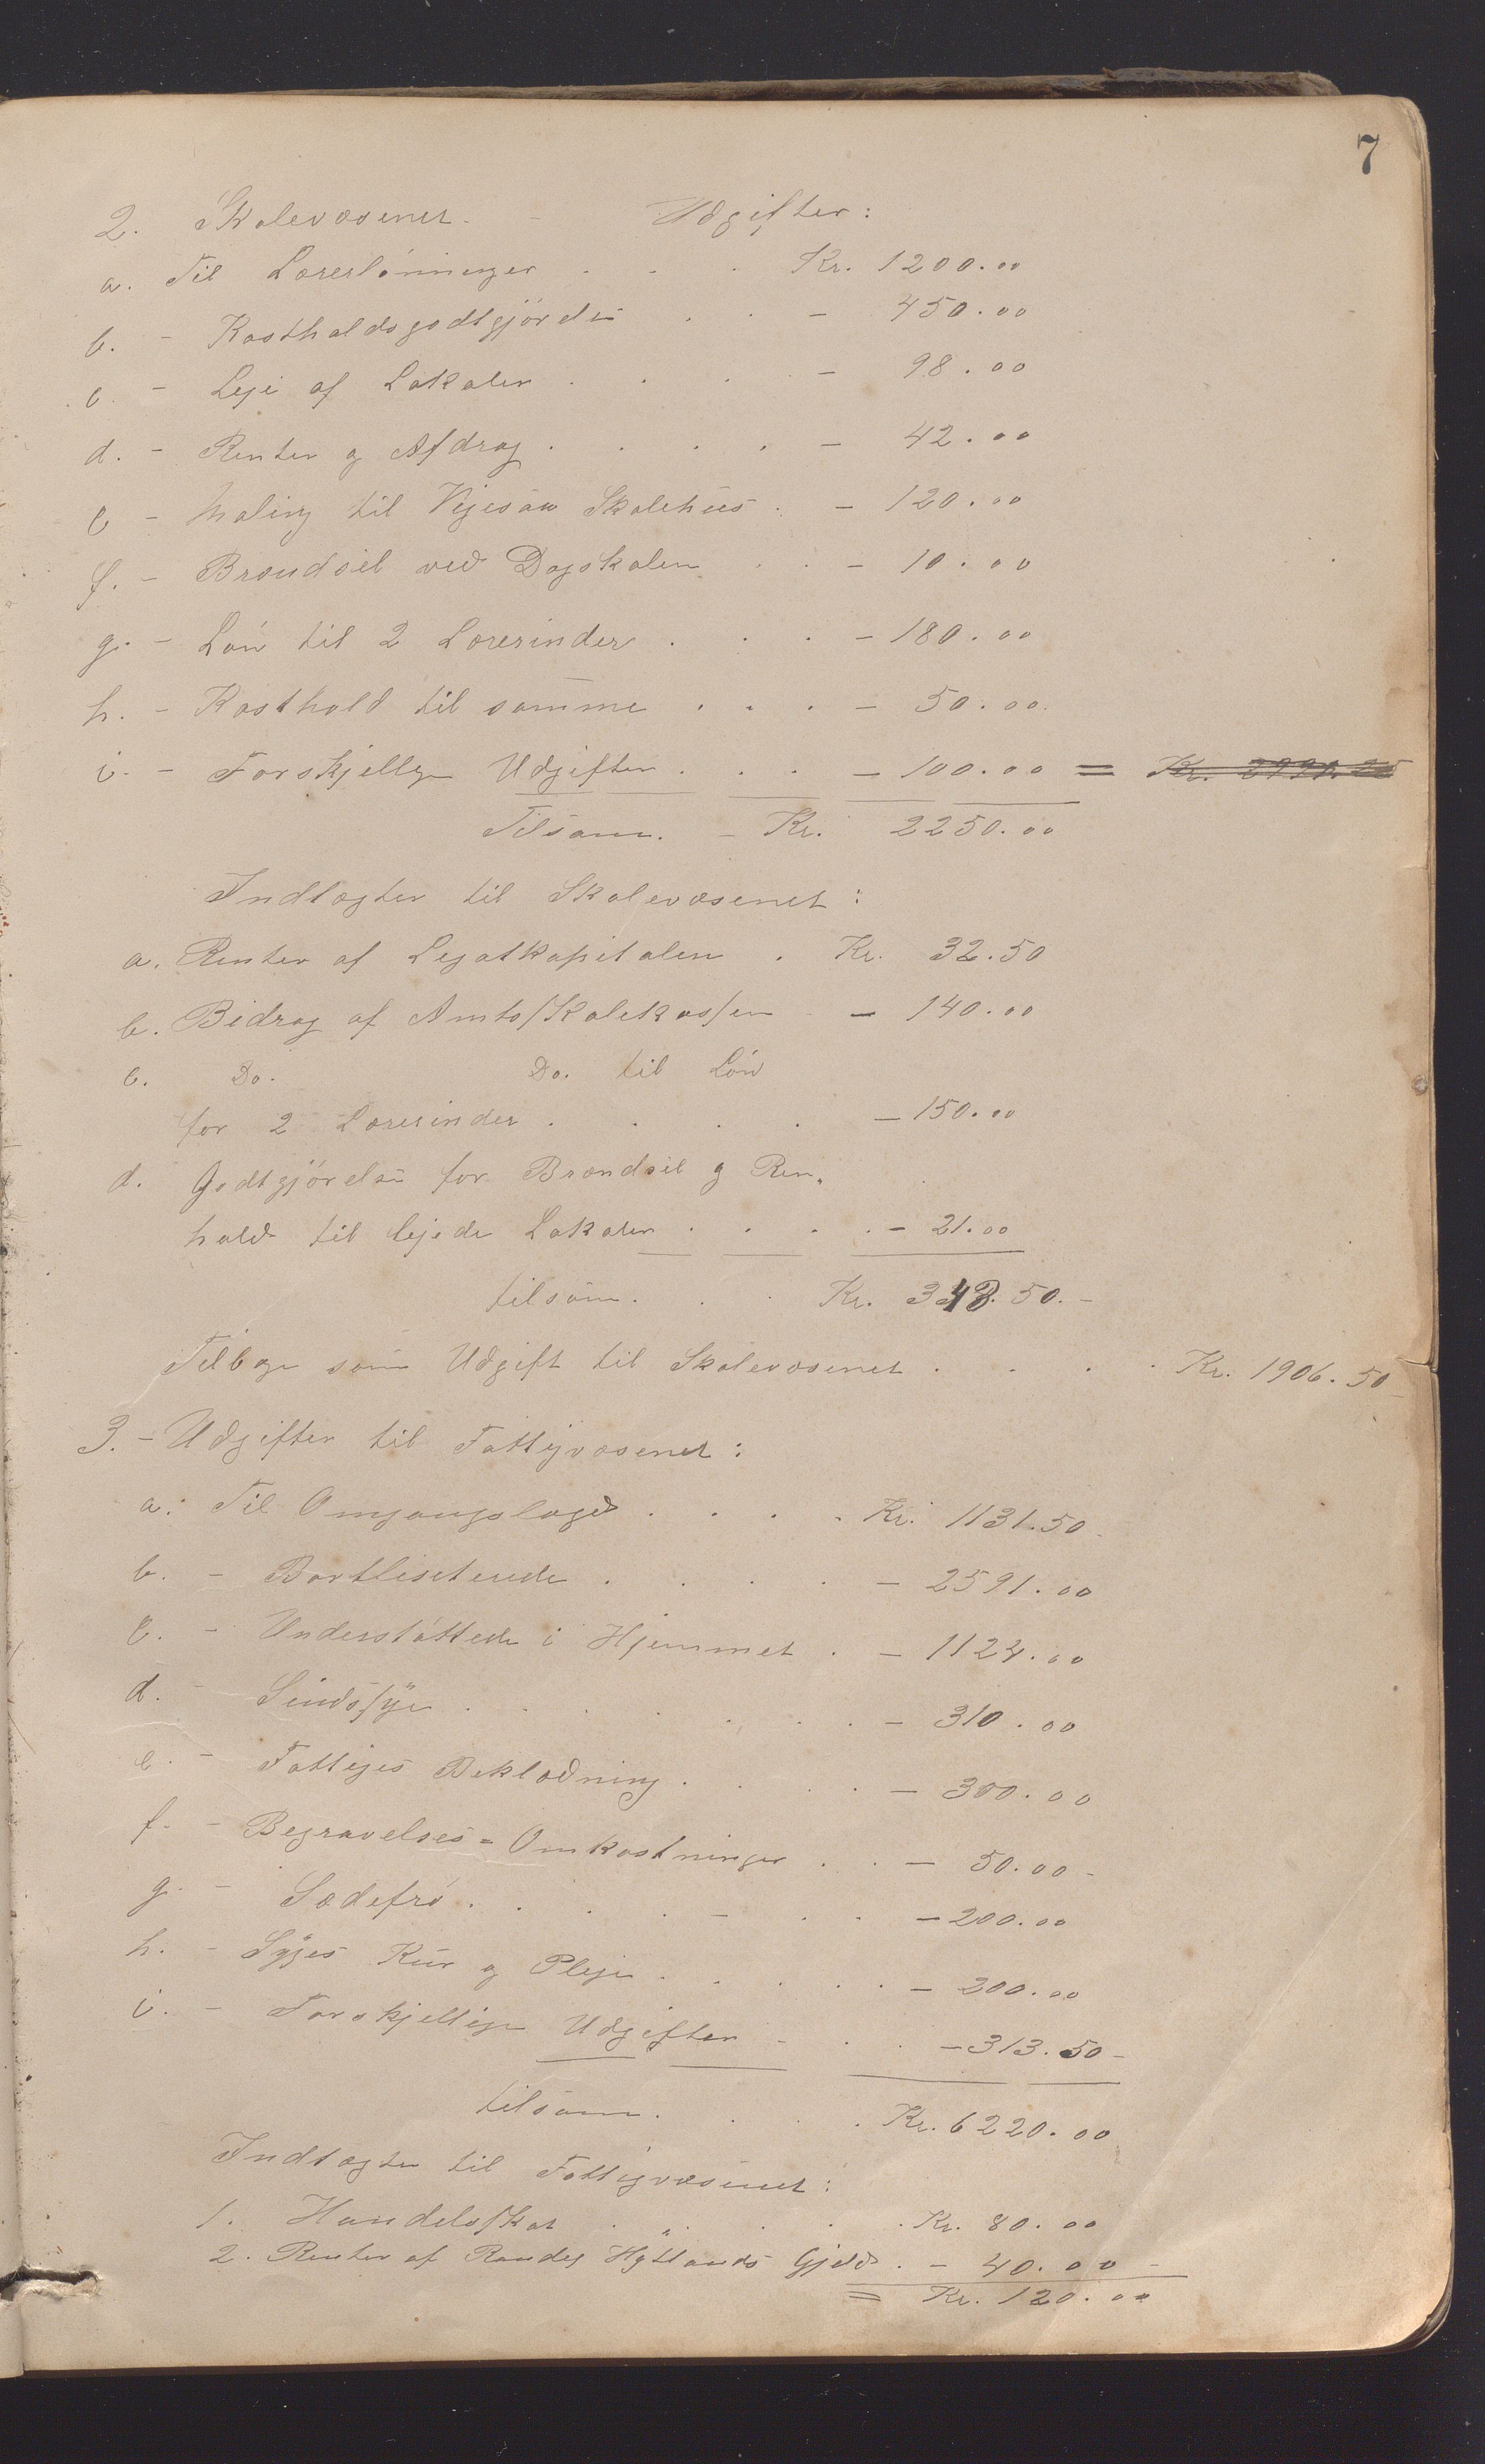 7
2. Skolevæsenet. - Udgifter:
a. Til Lærerlönninger . . . Kr. 1200.00
b. - Kostholdsgodtgjörelse . . - 450.00
c. - Leje af Lokaler . . . - 98.00
d. - Renter og Afdrag . . . . - 42.00
e - Maling til Skolehus . - 120.00
f. - Brændsel ved Dagskolen . . - 10.00
g. - Lön til 2 Lærerinder . . . - 180.00
h. - Kosthold til samme . . . - 50.00.
i. - Forskjellige Udgifter . . . - 100.00 =
Tilsam. - Kr. 2250.00
Indtægter til Skolevæsenet:
a. Renter af Legatkapitalen . Kr. 32.50
b. Bidrag af Amtsskolekassen - 140.00
c. Do. Do. til Lön
for 2 Lærerinder . . . . - 150.00
d. Godtgjörelse for Brændsel og Ren-
hold til lejede Lokaler . . . - 21.00
tilsam. . . Kr. 343.50.-
Tilbage som Udgift til Skolevæsenet . . . . Kr. 1906.50
3. - Udgifter til Fattigvæsenet:
a. Til Omgangslægd . . . . Kr. 1131.50
b. - Bortlisiterede . . . . - 2591.00
c. - Understöttede i Hjemmet . - 1124.00
d. - Sindssyge . . . . . . - 310.00
e. - Fattiges Beklædning . . . - 300.00
f. - Begravelses-Omkostninger . . - 50.00-
g. - Sædefrö . . . . - . . - 200.00
h. - Syges Kur og Pleje . . . . . - 200.00
i. - Forskjellige Udgifter - . . - 313.50-
tilsam. . . . . Kr. 6220.00
Indtægter til Fattigvæsenet:
1. Handelsskat . . . . . Kr. 80.00
2. Renter af Gjeld . - 40.00-
= Kr. 120.00